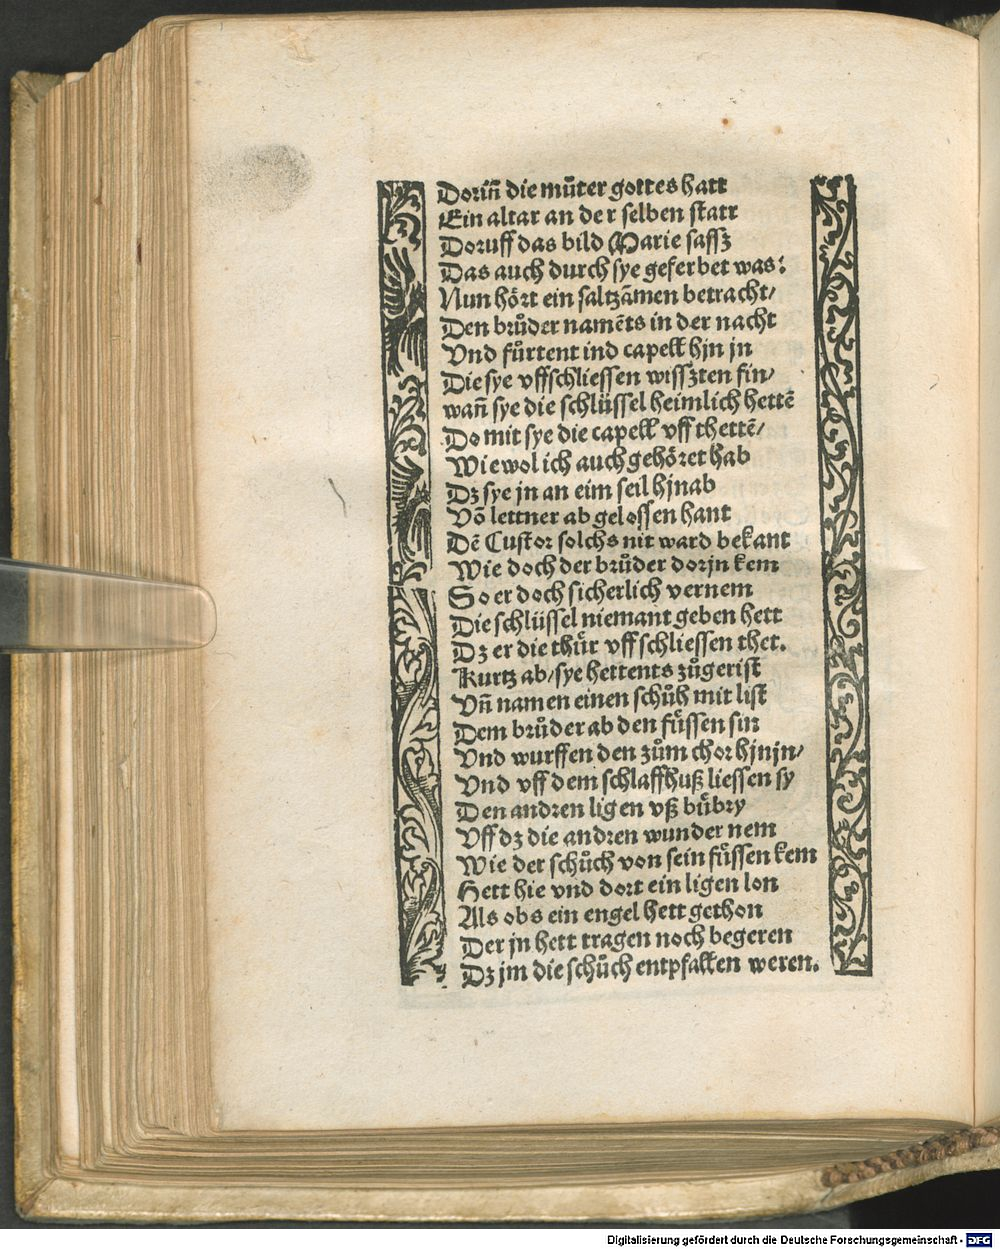 Doriñ die můter gottes hatt
Ein altar an der selben statt
Doruff das bild Marie sassz
Das auch durch sye geferbet was:
Nun hört ein saltzãmen betracht/
Den brůder namẽts in der nacht
Vnd fůrtent ind capell hjn jn
Die sye vffschliessen wisszten fin/
wañ sye die schlüssel heimlich hettẽ
Do mit sye die capell vff thettẽ/
Wie wol ich auch gehöret hab
Dz sye jn an eim seil hjnab
Võ lettner ab gelossen hant
Dẽ Custor solchs nit ward bekant
Wie doch der brůder dorjn kem
So er doch sicherlich vernem
Die schlüssel niemant geben hett
Dz er die thür vff schliessen thet.
Kurtz ab/sye hettents zůgerist
Vñ namen einen schůh mit list
Dem brůder ab den füssen sin
Vnd wurffen den zům chor hjnjn/
Vnd vff dem schlaffhuß liessen sy
Den andren ligen vß bübry
Vff dz die andren wunder nem
Wie der schůch von sein füssen kem
Hett hie vnd dort ein ligen lon
Als obs ein engel hett gethon
Der jn hett tragen noch begeren
Dz jm die schůch entpfallen weren.
Digitalisierung gefördert durch die Deutsche Forschungsgemeinschaft - DFG